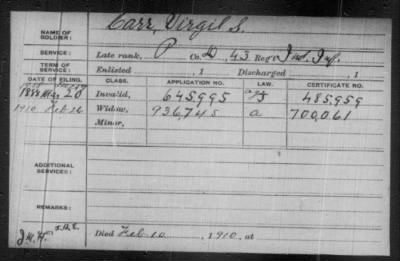 NAME OF SOLDIER: Carr, Virgil S.
SERVICE: Late rank, P Co. D, 43 Reg't Ind. Inf.
TERM OF SERVICE: Enlisted , 1 Discharged , 1
DATE OF FILING. CLASS. APPLICATION NO. LAW. CERTIFICATE NO.
1888 Mar 20 Invalid, 645,995 485,959
1910 Feb 26 Widow, 936,745 a 700,061
Minor,
ADDITIONAL SERVICES:
REMARKS:
Died Feb 10 1910, at